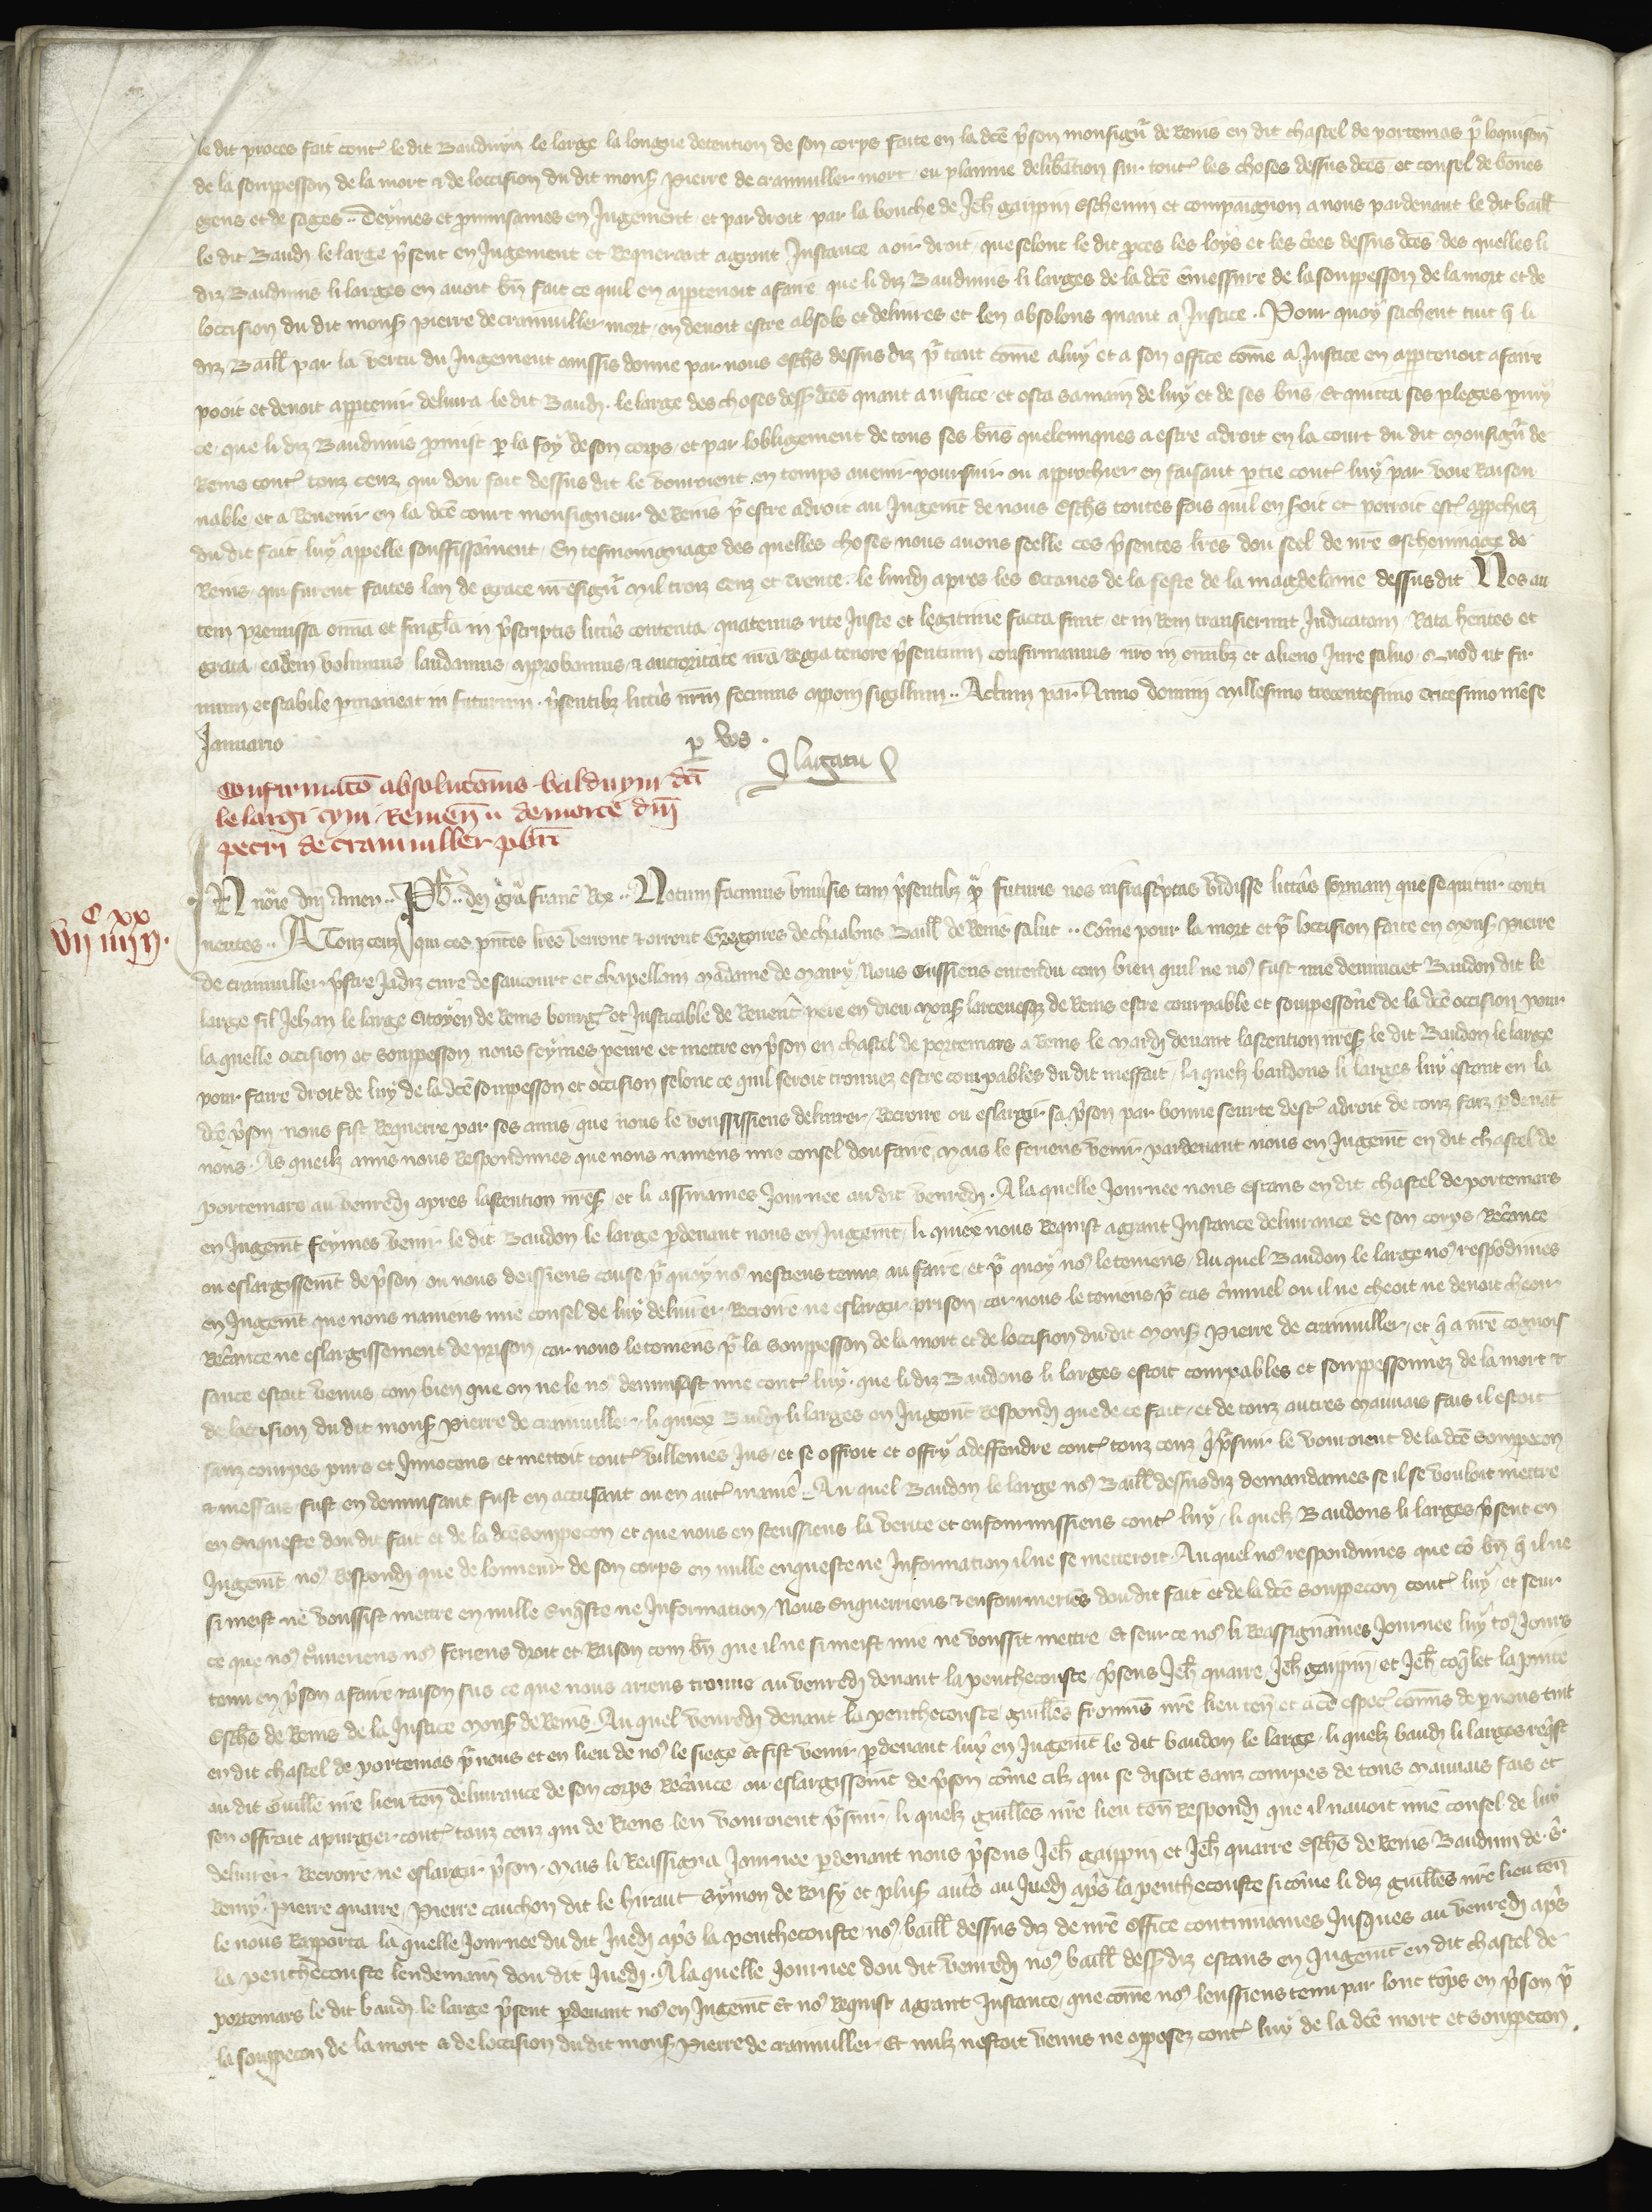 le dit proces fait contˀ le dit Bauduyn le large la longue detention de son corps faite en la dc̄e p̄son monsign̄r de Reins en dit chastel de portemas pr̄ loquison
de la souspesson de la mort & de loccision du dit monsˀ Pierre de cramuller mort / eu planniē delibacion sur toutˀ les choses dessus dc̄es et conseil de bōnes
gens et de sages .. Deymes et pronunsames en Jugement et par droit par la bouche de Jeh̄ gaippin eschevin et compaignon a nous pardevant le dit baill̄
le dit Baudȷ le large p̄sent en Jugement et Requerant a grant Instance a oir droit que selonc le dit pces les loys et les c̄res dessus dc̄es des quelles li
diz Bauduins li larges en avoit bn̄ fait ce quil en apptenoit a faire que li diz Bauduins li larges de la dc̄e emessure de la souppesson de la mort et de
loccision du dit monsˀ Pierre de cramuller mort en devoit estre absols et delivres et len absolons quant a Justice . Pour quoy sachent tuit q̄ li
diz Baill̄ par la vertu du Jugement anissis donne par nous eschs̄ dessus diz pr̄ tant com̄e a luy et a son office com̄e a Justice en apptenoit a faire
pooit et devoit apptenir delivra le dit Baudȷ le large des choses dessˀ dc̄es quant a justice et osta sa main de luy et de ses bn̄s Et quitta ses pleges pmy
ce que li diz Bauduins pmist p la foy de son corps et par lobligement de tous ses bn̄s quelcunques a estre a droit en la court du dit monsign̄r de
Reins contˀ touz ceuz qui dou fait dessus dit le vourroient en temps avenir poursuir ou approchier en faisant ptie contˀ luy par voie Raison
nable et a Revenir en la dc̄e court monsigneur de Reins pr̄ estre a droit au Jugem̄t de nous Eschs̄ toutes fois quil en seroit et porroit estˀ approchiez
du dit fait luy appelle souffissāment En tesmoingnage des quelles choses nous avons seelle ces p̄sentes lr̄es dou seel de nr̄e eschevinage de
Reins qui furent faites lan de grace nr̄esign̄r mil trois cenz et trente le lundȷ apres les octaves de la feste de la magdelaine dessus dit Nos au
tem premissa omn̄a et singl̄a in p̄scriptis litt̄is contenta quatenus rite Juste et legitime facta sunt et in Rem transierunt Judicatam Rata hentes et
grata eadem volumus laudamus approbamus & auctoritate nr̄a Regia tenore p̄sentium confirmamus nr̄o in omībȝ et alieno Jure salvo Quod ut fir
mum et stabile pmaneat in futurum p̄sentibȝ litt̄is nr̄m fecimus apponi sigillum .. Actum par̄ Anno domini millesimo trecentesimo tricesimo mēse
Januario
p vos .
Jlagatu
Confirmac̄o absoluc̄onis balduyni dc̄i
le largi civis Remen̄ .. de morte dn̄i
petri de cramuller pbr̄i
C xx
vii iiii ii .
IN noi̅e dn̄i Amen .. Ph̄ .. dei gr̄a franc̄ Rex .. Notum facimus univ̄sis tam p̄sentibȝ qȝ futuris nos infrascp̄tas vidisse litt̄as formam que sequitur conti
nentes .. A Touz ceuz qui ces pn̄tes lr̄es verront & orront Gregoires de chaalons Baill̄ de Reins salut .. Cōme pour la mort et pr̄ loccision faite en monsˀ Pierre
de cramuller p̄stre Jadiz cure de saucourt et chapellain madame de Mairy Nous eussiens entendu com bien quil ne noꝰ fust mie denunciet Baudon dit le
large fil Jehan le large Citoyen de Reins bourgˀ et Justicable de Reverēt pere en dieu monsˀ larcevesqȝ de Reins estre courpable et souppessoñe de la dc̄e occision pour
la quelle occision et souspesson nous feymes penre et mettre en p̄son en chastel de portemars a Reins le mardȷ devant lascention nr̄esˀ le dit Baudon le large
pour faire droit de luy de la dc̄e souspesson et occision selonc ce quil seroit trouvez estre courpables du dit meffait / la quelz baudons li larges luy estant en la
dc̄e p̄son nous fist Requerre par ses amis que nous le voussissiens delivrer / Recroire ou eslargir sa p̄son par bonne seurte destˀ a droit de touz faiz pdevāt
nous . As queilz amis nous Respondimes que nous naviens mie consel dou faire / mais le feriens venir pardevant nous en Jugem̄t en dit chastel de
portemars au venredȷ apres lascention nr̄esˀ et li assinames Journee au dit venredȷ . A la quelle Journee nous estans en dit chastel de portemars
en Jugem̄t feymes venir le dit Baudon le large pdevant nous en Jugem̄t li quiex nous Requist a grant Instance delivrance de son corps Rec̄ance
ou eslargissem̄t de p̄son ou nous deissiens cause pr̄ quoy noꝰ nestiens tenuz au faire et pr̄ quoy noꝰ le teniens / Au quel Baudon le large noꝰ respōdimes
en Jugem̄t que nous naviens mie consel de luy delivrer Recroire ne eslargir prison car nous le teniens pr̄ cas c̄iminel ou il ne cheoit ne devoit cheoir
Rec̄ance ne eslargissement de prison car nous le teniens pr̄ la souppesson de la mort et de loccision du dit monsˀ Pierre de cramuller / et q̄ a nr̄e cognois
sance estoit venus com bien que on ne le noꝰ denunsast mie contˀ luy . que li diz Baudons li larges estoit courpables et souppessonnez de la mort &
de loccision du dit monsˀ Pierre de cramuller . li quiex Baudȷ li larges en Jugem̄t Respondȷ que de ce fait et de touz autres mauvais fais il estoit
sanz courpes purs et Innocens / et mettoit toutˀ villenies Jus / et se offroit et offry a deffendre contˀ touz ceuz q̄ pr̄suir le vouroient de la dc̄e souppecon
& meffait fust en denunsant fust en accusant ou en autˀ maniē .. Au quel Baudon le large noꝰ Baill̄ dessus diz demandames se il se vouloit mettre
en Enqueste dou dit fait et de la dc̄e souppecon et que nous en sceussiens la verite et enfourmissiens contˀ luy / li quelz Baudons li larges p̄sent en
Jugem̄t noꝰ Respondȷ que de lonneur de son corps en nulle enqueste ne Information il ne se metteroit . Au quel noꝰ respondimes que cō bn̄ q̄ il ne
si meist ne voussist mettre en nulle Enq̄ste ne Information / Nous Enquerriens & enfourmeriēs dou dit fait et de la dc̄e souppecon contˀ luy / et seur
ce que noꝰ tͦuveriens noꝰ feriens droit et Raison com bn̄ que il ne si meist mie ne voussit mettre Et seur ce noꝰ li Reassignames Journee luy toꝰ Jours
tenu en p̄son a faire raison sus ce que nous ariens trouve au venredȷ devant la penthecouste / p̄sens Jeh̄ quarre Jeh̄ gaippin / et Jeh̄ coq̄let la pinte
Eschs̄ de Reins de la Justice monsˀ de Reins . Au quel venredȷ devant la penthecouste guill̄es fromīs nr̄e lieu ten̄ et a ce espec̄ com̄is de p nous tint
en dit chastel de portemas pr̄ nous et en lieu de noꝰ le siege Et fist venir pdevant luy en Jugem̄t le dit baudon le large . li quelz baudȷ li larges req̄st
au dit Guill̄e nr̄e lieu ten̄ delivrance de son corps Rec̄ance ou eslargissem̄t de p̄son cōme cilz qui se disoit sanz courpes de tous mauvais fais et
sen offroit a purger contˀ touz ceuz qui de Riens len vourroient pr̄suir li quelz guill̄es nr̄e lieu ten̄ Respondȷ que il navoit mie consel de luy
delivrer Recroire ne eslargir p̄son . mais li Reassigna Journee pdevant nous p̄sens Jeh̄ gaippin et Jeh̄ quarre Eschs̄ de Reins Bauduin de . s̄ .
Remy . Pierre quarre / Pierre cauchon dit le hiraut Symon de Roisy et plusˀ aut̄s au Juedȷ ap̄s la penthecouste si cōme li diz guill̄es nr̄e lieu ten̄
le nous Rapporta la quelle Journee du dit Juedȷ ap̄s la penthecouste noꝰ baill̄ dessus diz de nr̄e office continuames Jusques au venredȷ ap̄s
la penthecouste lendemain dou dit Juedȷ . A la quelle Journee dou dit venredȷ noꝰ baill̄ dessˀ diz estans en Jugem̄t en dit chastel de
portemars le dit baudȷ le large p̄sent pdevant noꝰ en Jugem̄t Et noꝰ Requist a grant Instance que com̄e noꝰ leussiens tenu par lonc tēps en p̄son pr̄
la souppecon de la mort & de loccision du dit monsˀ Pierre de cramuller Et nulz nestoit venus ne opposez contˀ luy de la dc̄e mort et souppecon .